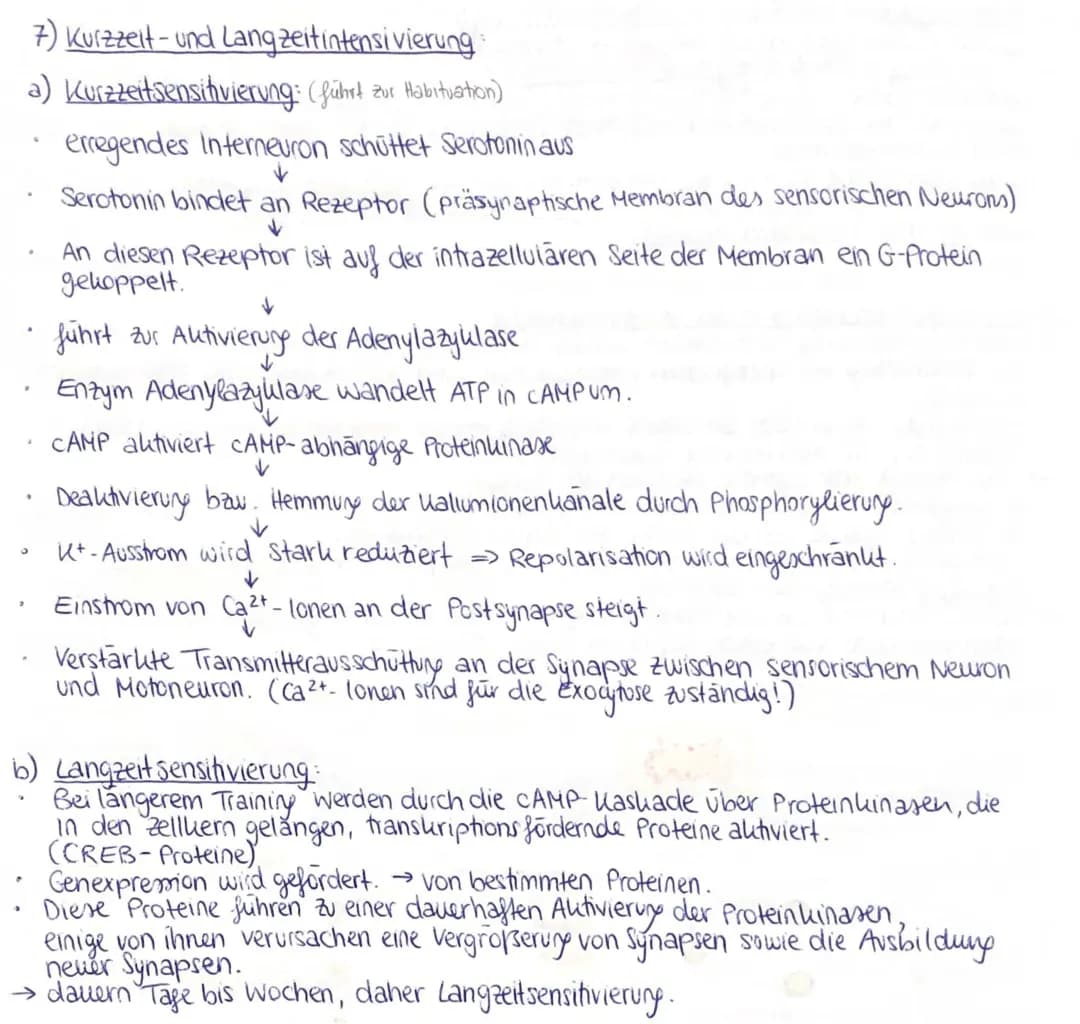 7) Kurzzeit- und Langzeitintensivierung:
a) Kurzzeitsensitivierung: (führt zur Habituation)
• erregendes Interneuron schüttet Serotonin aus
↓
• Serotonin bindet an Rezeptor (präsynaptische Membran des sensorischen Neurons)
↓
• An diesen Rezeptor ist auf der intrazellulären Seite der Membran ein G-Protein
gekoppelt.
↓
• führt zur Aktivierung der Adenylazyklase
↓
• Enzym Adenylazyklase wandelt ATP in cAMP um.
↓
• cAMP aktiviert cAMP-abhängige Proteinkinase
↓
• Deaktivierung bzw. Hemmung der Kaliumionenkanäle durch Phosphorylierung.
↓
• K+-Ausstrom wird stark reduziert => Repolarisation wird eingeschränkt.
↓
• Einstrom von Ca²⁺-Ionen an der Postsynapse steigt.
↓
• Verstärkte Transmitterausschüttung an der Synapse zwischen sensorischem Neuron
und Motoneuron. (Ca²⁺-Ionen sind für die Exocytose zuständig!)
b) Langzeitsensitivierung:
• Bei längerem Training werden durch die cAMP-Kaskade über Proteinkinasen, die
in den Zellkern gelangen, transkriptionsfördernde Proteine aktiviert.
(CREB-Proteine)
• Genexpression wird gefördert. → von bestimmten Proteinen.
• Diese Proteine führen zu einer dauerhaften Aktivierung der Proteinkinasen,
einige von ihnen verursachen eine Vergrößerung von Synapsen sowie die Ausbildung
neuer Synapsen.
→ dauern Tage bis Wochen, daher Langzeitsensitivierung.